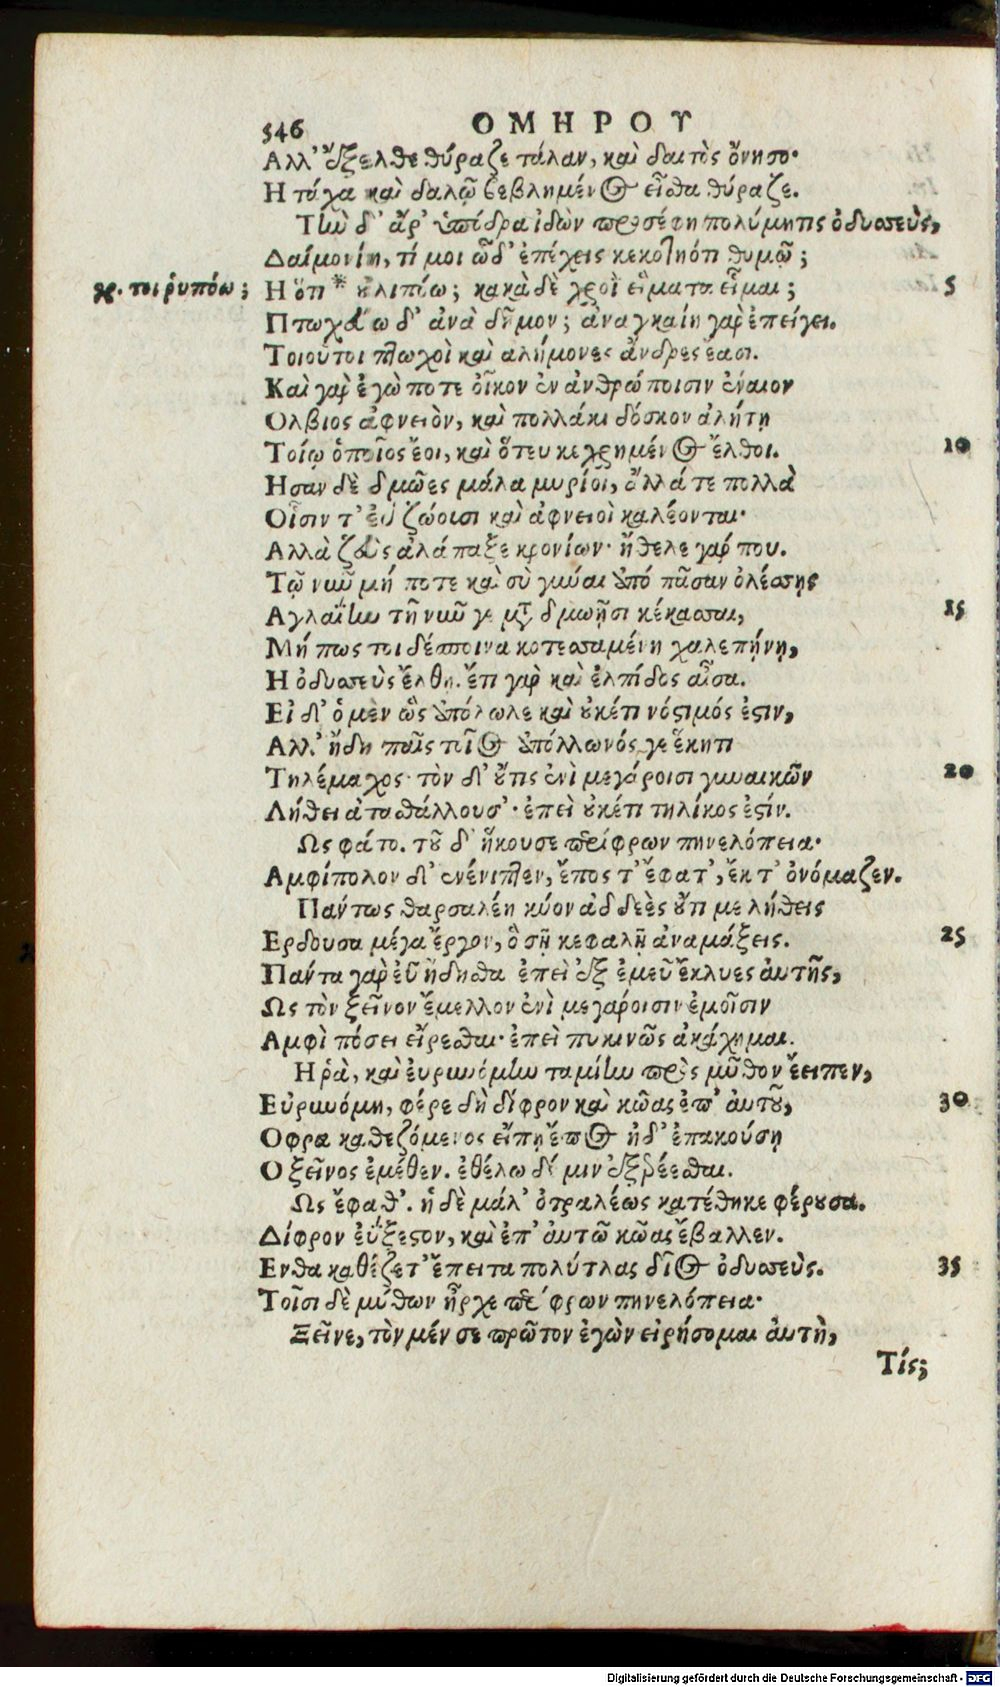 546 ΟΜΗΡΟΥ
Αλλ' ἔξελθε θύραζε τάλαν, καὶ δαιτὸς ὄνησο·
Η τάχα καὶ δαλῷ βεβλημένος εἶσθα θύραζε.
Τὴν δ' ἄρ' ὑπόδρα ἰδὼν προσέφη πολύμητις ὀδυσσεὺς,
Δαιμονίη, τί μοι ὧδ' ἐπέχεις κεκοτηότι θυμῷ;
γρ. τοι ῥυπόω; Η ὅτι * οὐ λιπόω; κακὰ δὲ χροῒ εἵματα εἷμαι; 5
Πτωχεύω δ' ἀνὰ δῆμον; ἀναγκαίη γὰρ ἐπείγει.
Τοιοῦτοι πτωχοὶ καὶ αλήμονες ἄνδρες ἔασι.
Καὶ γὰρ ἐγώ ποτε οἶκον ἐν ἀνθρώποισιν ἔναιον
Ολβιος ἀφνειὸν, καὶ πολλάκι δόσκον ἀλήτῃ
Τοίῳ ὁποῖος ἔοι, καὶ ὅτευ κεχρημένος ἔλθοι. 10
Ησαν δὲ δμῶες μάλα μυρίοι, ἄλλά τε πολλὰ
Οἷσιν τ' εὖ ζώουσι καὶ ἀφνειοὶ καλέονται·
Αλλὰ ζεὺς ἀλάπαξε κρονίων· ἤθελε γάρ που.
Τῷ νῦν μή ποτε καὶ σὺ γύναι ἀπό πᾶσαν ὀλέσσῃς
Αγλαΐην τῇ νῦν γε μετὰ δμωῇσι κέκασσαι, 15
Μή πως τοι δέσποινα κοτεσσαμένη χαλεπήνῃ,
Η ὀδυσσεὺς ἔλθῃ. ἔτι γὰρ καὶ ἐλπίδος αἶσα.
Εἰ δ' ὁ μὲν ὣς ἀπόλωλε καὶ οὐκέτι νόστιμός ἐστιν,
Αλλ' ἤδη παῖς τοῖος ἀπόλλωνός γε ἕκητι
Τηλέμαχος· τὸν δ' οὔτις ἐνὶ μεγάροισι γυναικῶν 20
Λήθει ἀτασθάλλουσ'· ἐπεὶ οὐκέτι τηλίκος ἐστίν.
Ως φάτο. τοῦ δ' ἤκουσε περίφρων πηνελόπεια·
Αμφίπολον δ' ἐνένιπτεν, ἔπος τ' ἔφατ', ἔκ τ' ὀνόμαζεν.
Πάντως θαρσαλέη κύον ἀδδεὲς οὔτι με λήθεις
Ερδουσα μέγα ἔργον, ὃ σῇ κεφαλῇ ἀναμάξεις. 25
Πάντα γὰρ εὖ ᾔδησθα ἐπεὶ ἐξ ἐμεῦ ἔκλυες αὐτῆς,
Ως τὸν ξεῖνον ἔμελλον ἐνὶ μεγάροισιν ἐμοῖσιν
Αμφὶ πόσει εἴρεσθαι· ἐπεὶ πυκινῶς ἀκάχημαι.
Η ῥὰ, καὶ εὐρυνόμην ταμίην πρὸς μῦθον ἔειπεν,
Εὐρυνόμη, φέρε δὴ δίφρον καὶ κῶας ἐπ' αὐτοῦ, 30
Οφρα καθεζόμενος εἴπῃ ἔπος ἠδ' ἐπακούσῃ
Ο ξεῖνος ἐμέθεν. ἐθέλω δέ μιν ἐξερέεσθαι.
Ως ἔφαθ'. ἡ δὲ μάλ' ὀτραλέως κατέθηκε φέρουσα.
Δίφρον ἐΰξεστον, καὶ ἐπ' αὐτῶ κῶας ἔβαλλεν.
Ενθα καθέζετ' ἔπειτα πολύτλας δῖος ὀδυσσεὺς. 35
Τοῖσι δὲ μύθων ἦρχε περίφρων πηνελόπεια·
Ξεῖνε, τὸν μέν σε πρῶτον ἐγὼν εἰρήσομαι αὐτὴ,
Τίς;
Digitalisierung gefördert durch die Deutsche Forschungsgemeinschaft - DFG